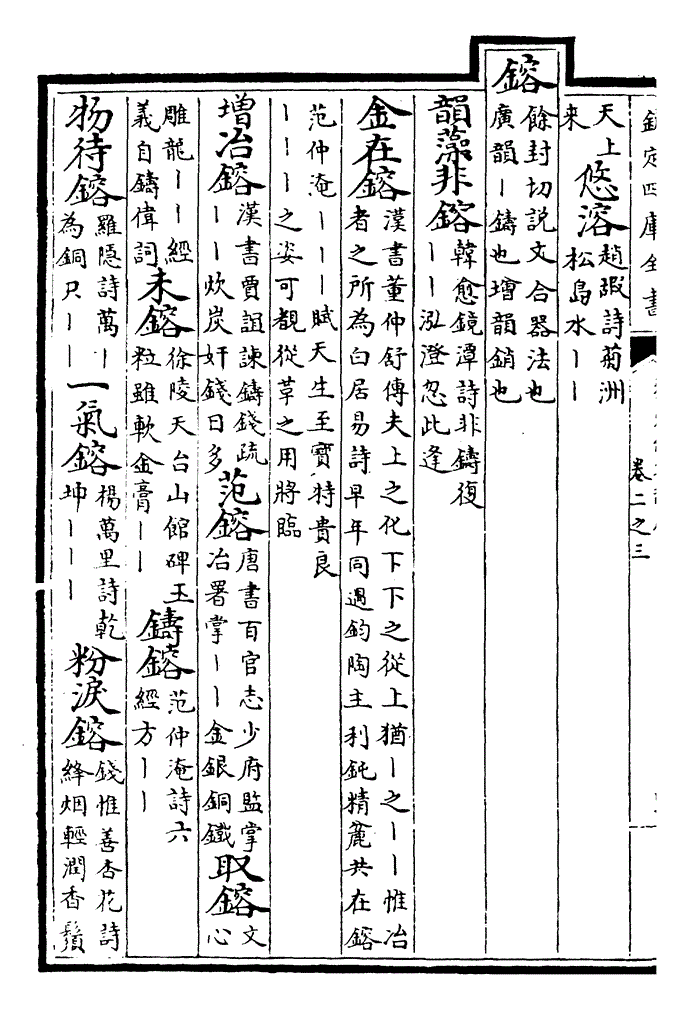 欽定四庫全書 卷二之三
天上
來
悠溶
趙嘏詩菊洲
松島水丨丨
鎔
餘封切説文合器法也
廣韻丨鑄也增韻銷也
韻藻非鎔
韓愈鏡潭詩非鑄復
丨丨泓澄忽此逢
金在鎔
漢書董仲舒傳夫上之化下下之從上猶丨之丨丨惟冶
者之所為白居易詩早年同遇鈞陶主利鈍精麄共在鎔
范仲淹丨丨丨賦天生至寶特貴良
丨丨丨之姿可觀從草之用將臨
增冶鎔
漢書賈誼諫鑄錢疏
丨丨炊炭奸錢日多
范鎔
唐書百官志少府監掌
冶署掌丨丨金銀銅鐵
取鎔
文
心
雕龍丨丨經
義自鑄偉詞
未鎔
徐陵天台山館碑玉
粒雖軟金膏丨丨
鑄鎔
范仲淹詩六
經方丨丨
物待鎔
羅隱詩萬丨
為銅只丨丨
一氣鎔
楊萬里詩乾
坤丨丨丨
粉淚鎔
錢惟善杏花詩
絳烟輕潤香鬚